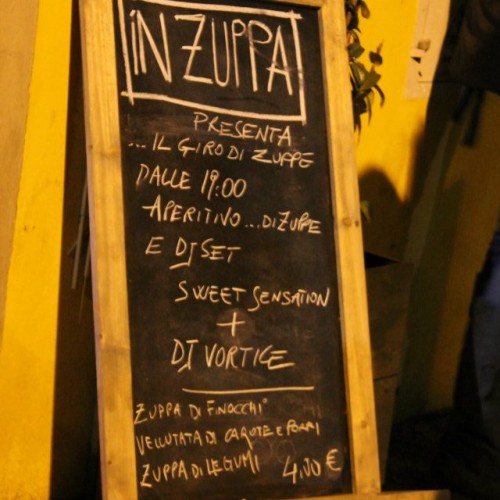 iN ZUPPA
PRESENTA
... IL GIRO DI ZUPPE
DALLE 19:00
APERITIVO... DI ZUPPE
E DJ SET
SWEET SENSATION
+
DJ VORTICE
ZUPPA DI FINOCCHI
VELLUTATA DI CAROTE E PORRI
ZUPPA DI LEGUMI 4,00 €